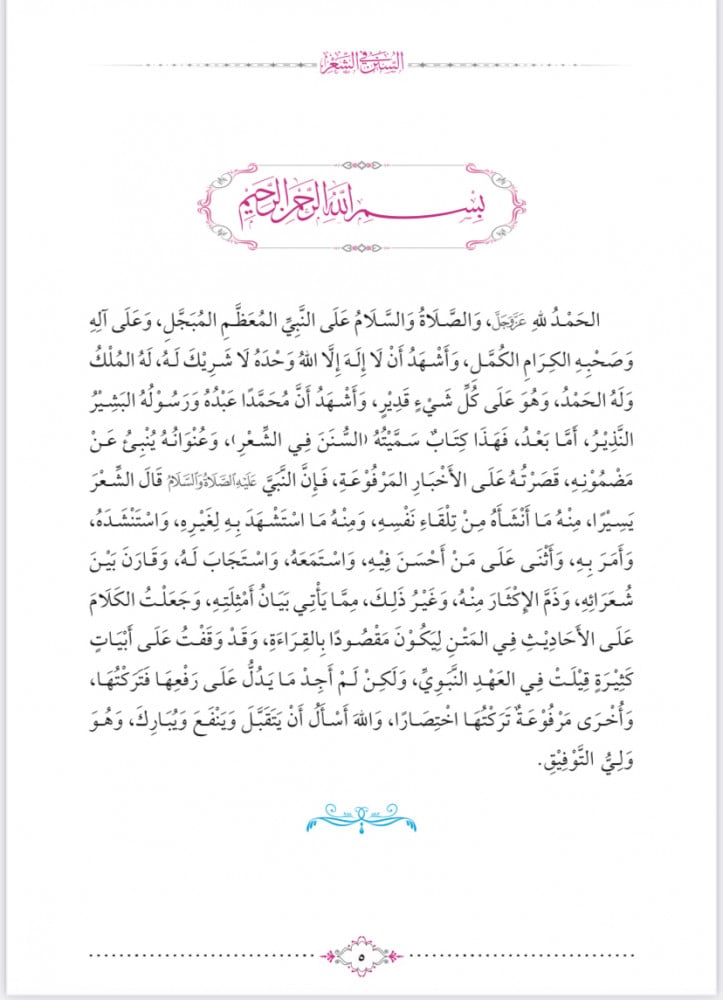 السنن في الشعر
بسم الله الرحمن الرحيم
الحَمْدُ للهِ عَزَّوَجَلَّ، وَالصَّلَاةُ وَالسَّلَامُ عَلَى النَّبِيِّ المُعَظَّمِ المُبَجَّلِ، وَعَلَى آلِهِ
وَصَحْبِهِ الكِرَامِ الكُمَّلِ، وَأَشْهَدُ أَنْ لَا إِلَهَ إِلَّا اللهُ وَحْدَهُ لَا شَرِيْكَ لَهُ، لَهُ المُلْكُ
وَلَهُ الحَمْدُ، وَهُوَ عَلَى كُلِّ شَيْءٍ قَدِيْرٍ، وَأَشْهَدُ أَنَّ مُحَمَّدًا عَبْدُهُ وَرَسُوْلُهُ البَشِيْرُ
النَّذِيْرُ، أَمَّا بَعْدُ، فَهَذَا كِتَابٌ سَمَّيْتُهُ (السُّنَنَ فِي الشِّعْرِ)، وَعُنْوَانُهُ يُنْبِئُ عَنْ
مَضْمُوْنِهِ، قَصَرْتُهُ عَلَى الأَخْبَارِ المَرْفُوْعَةِ، فَإِنَّ النَّبِيَّ عَلَيْهِ الصَّلَاةُ وَالسَّلَامُ قَالَ الشِّعْرَ
يَسِيْرًا، مِنْهُ مَا أَنْشَأَهُ مِنْ تِلْقَاءِ نَفْسِهِ، وَمِنْهُ مَا اسْتَشْهَدَ بِهِ لِغَيْرِهِ، وَاسْتَنْشَدَهُ،
وَأَمَرَ بِهِ، وَأَثْنَى عَلَى مَنْ أَحْسَنَ فِيْهِ، وَاسْتَمَعَهُ، وَاسْتَجَابَ لَهُ، وَقَارَنَ بَيْنَ
شُعَرَائِهِ، وَذَمَّ الإِكْثَارَ مِنْهُ، وَغَيْرُ ذَلِكَ، مِمَّا يَأْتِي بَيَانُ أَمْثِلَتِهِ، وَجَعَلْتُ الكَلَامَ
عَلَى الأَحَادِيْثِ فِي المَتْنِ لِيَكُوْنَ مَقْصُوْدًا بِالقِرَاءَةِ، وَقَدْ وَقَفْتُ عَلَى أَبْيَاتٍ
كَثِيْرَةٍ قِيْلَتْ فِي العَهْدِ النَّبَوِيِّ، وَلَكِنْ لَمْ أَجِدْ مَا يَدُلُّ عَلَى رَفْعِهَا فَتَرَكْتُهَا،
وَأُخْرَى مَرْفُوْعَةٌ تَرَكْتُهَا اخْتِصَارًا، وَاللهَ أَسْأَلُ أَنْ يَتَقَبَّلَ وَيَنْفَعَ وَيُبَارِكَ، وَهُوَ
وَلِيُّ التَّوْفِيْقِ.
٥